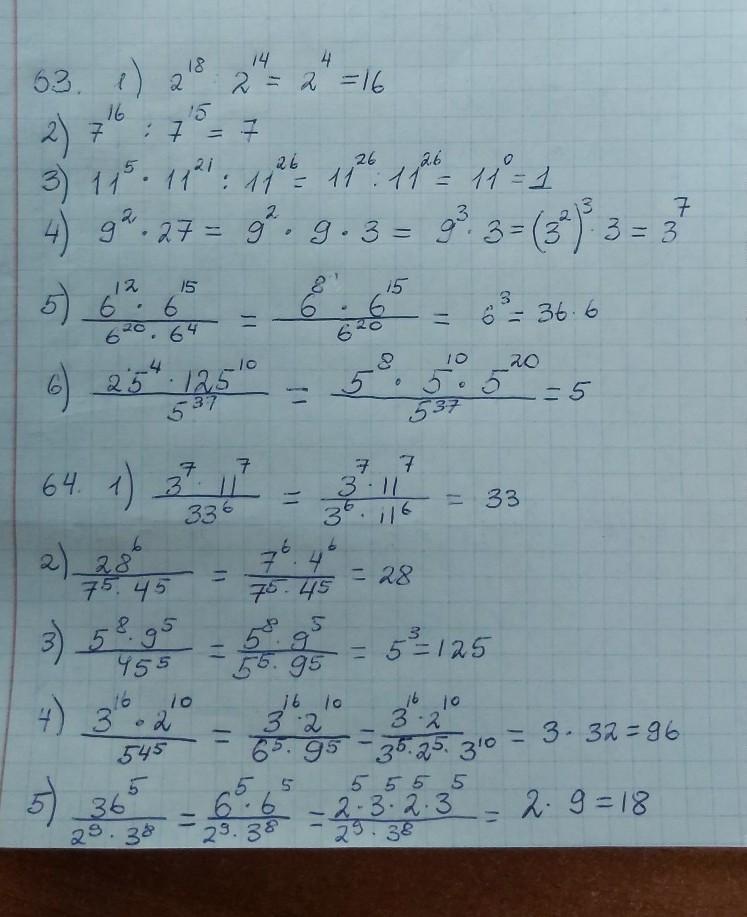 63. 1) 2¹⁸ : 2¹⁴ = 2⁴ = 16
2) 7¹⁶ : 7¹⁵ = 7
3) 11⁵ · 11²¹ : 11²⁶ = 11²⁶ : 11²⁶ = 11⁰ = 1
4) 9² · 27 = 9² · 9 · 3 = 9³ · 3 = (3²)³ · 3 = 3⁷
5) (6¹² · 6¹⁵)/(6²⁰ · 6⁴) = (6⁸ · 6¹⁵)/6²⁰ = 6³ = 36 · 6
6) (25⁴ · 125¹⁰)/5³⁷ = (5⁸ · 5¹⁰ · 5²⁰)/5³⁷ = 5
64. 1) (3⁷ · 11⁷)/33⁶ = (3⁷ · 11⁷)/(3⁶ · 11⁶) = 33
2) 28⁶/(7⁵ · 4⁵) = (7⁶ · 4⁶)/(7⁵ · 4⁵) = 28
3) (5⁸ · 9⁵)/45⁵ = (5⁸ · 9⁵)/(5⁵ · 9⁵) = 5³ = 125
4) (3¹⁶ · 2¹⁰)/54⁵ = (3¹⁶ · 2¹⁰)/(6⁵ · 9⁵) = (3¹⁶ · 2¹⁰)/(3⁵ · 2⁵ · 3¹⁰) = 3 · 32 = 96
5) 36⁵/(2⁹ · 3⁸) = (6⁵ · 6⁵)/(2⁹ · 3⁸) = (2⁵ · 3⁵ · 2⁵ · 3⁵)/(2⁹ · 3⁸) = 2 · 9 = 18